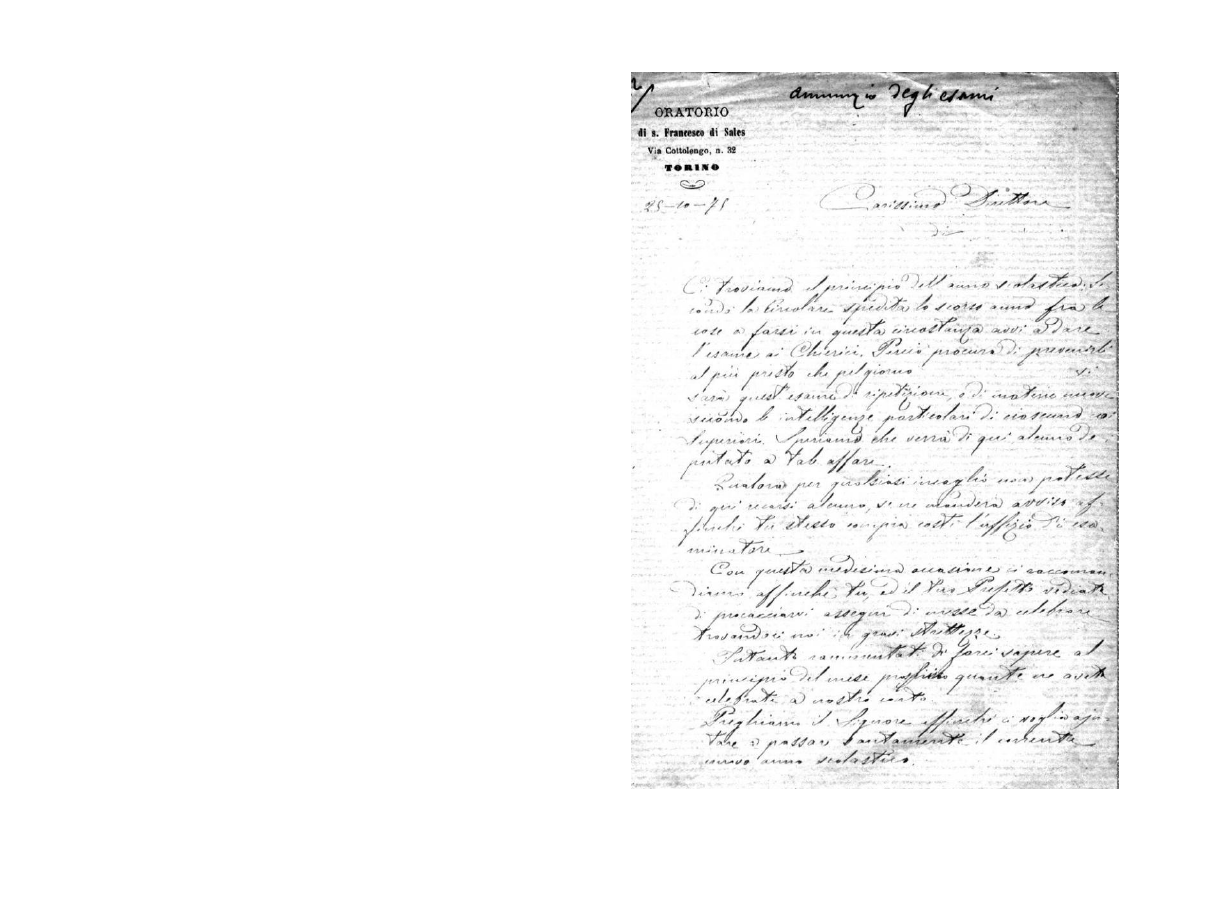 annunzio degli esami
ORATORIO
di s. Francesco di Sales
Via Cottolengo, n. 32
TORINO
25-10-75
Carissimo Direttore
di
Ci troviamo il principio dell'anno scolastico. Se
condo la Circolare spedita lo scorso anno fra le
cose a farsi in questa circostanza avvi a dare
l'esame ai Chierici. Perciò procura di prevenirli
al più presto che pel giorno vi
sarà quest'esame di ripetizione, o di materie nuove
secondo le intelligenze particolari di ciascuno coi
Superiori. Speriamo che verrà di qui alcuno de
putato a tale affare.
Qualora per qualsiasi incaglio non potesse
di qui recarsi alcuno, se ne manderà avviso af-
finchè tu stesso compia costì l'uffizio di esa
minatore.
Con questa medesima occasione ci raccoman
diamo affinchè tu, ed il tuo Prefetto vediate
di procacciarvi assegni di messe da celebrare
trovandoci noi in gravi strettezze.
Intanto rammentati di farci sapere al
principio del mese prossimo quante ne avete
celebrate a nostro conto.
Preghiamo il Signore affinchè ci voglia aju-
tare a passare santamente il corrente
nuovo anno scolastico.